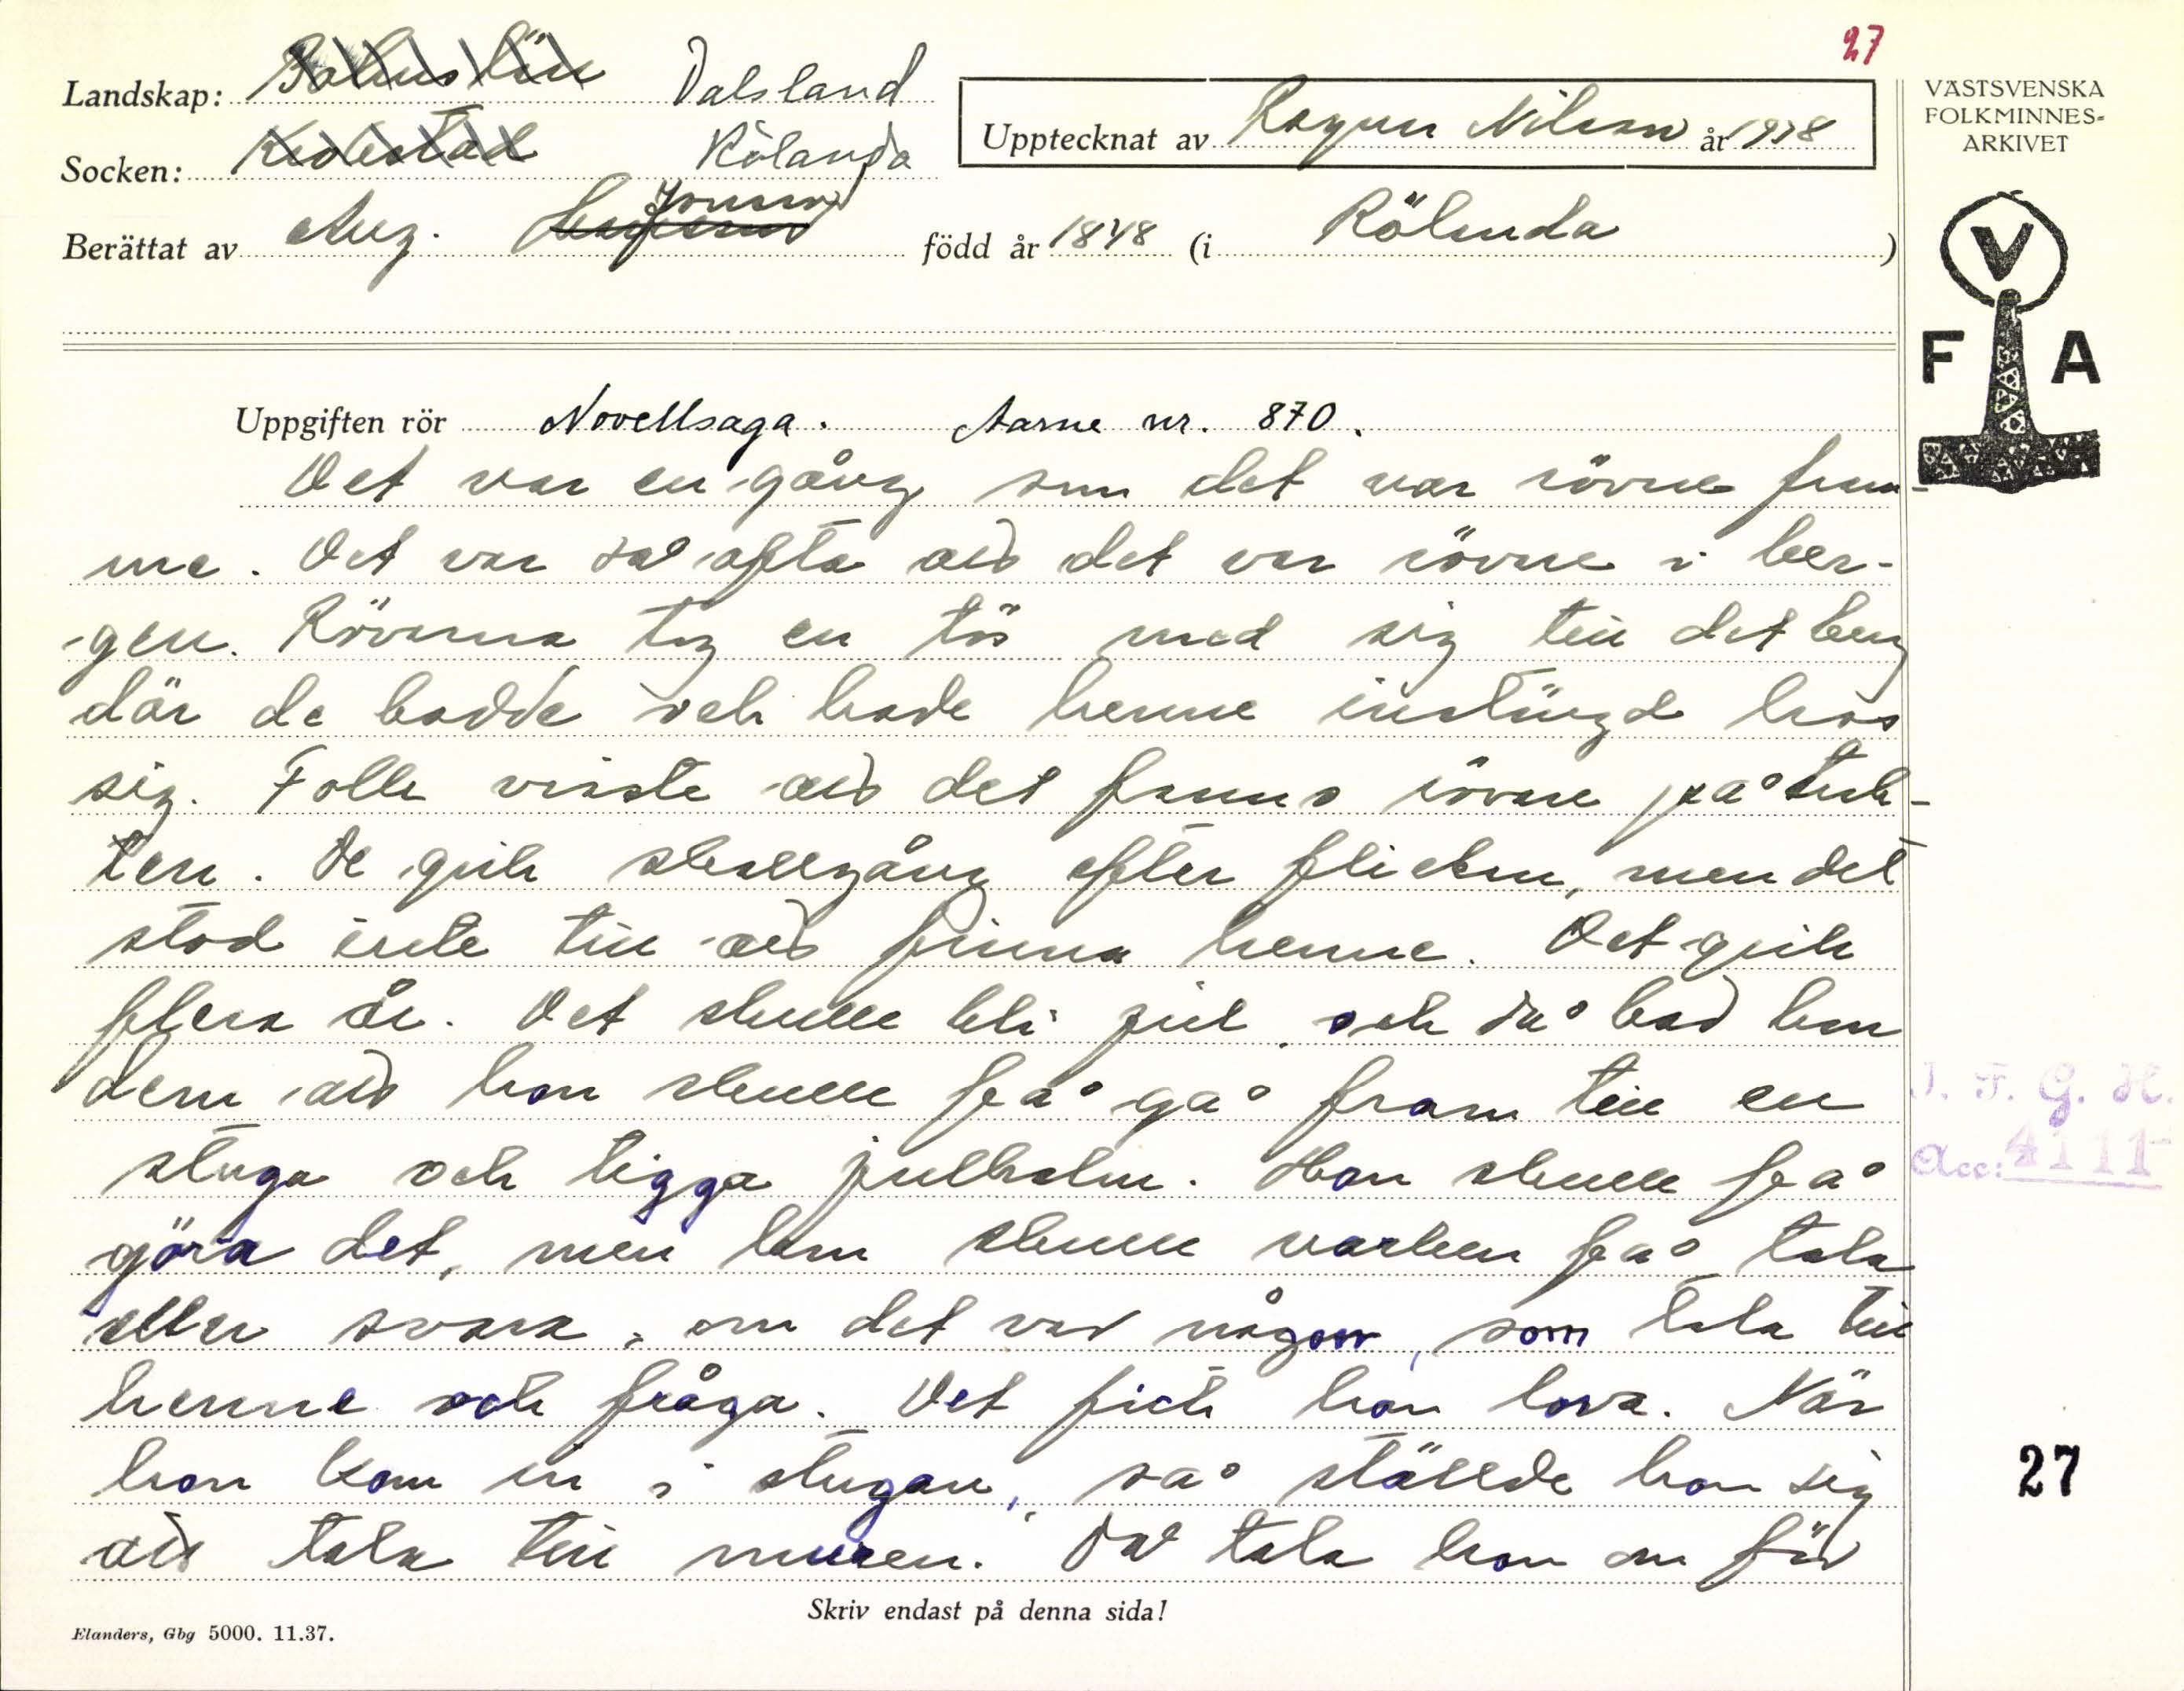 27
Landskap: Bohuslän Dalsland
Socken: Rölanda
Upptecknat av Ragnar Nilsson år 1938
Berättat av Aug. Jonsson född år 1848 (i Rölanda)
VÄSTSVENSKA
FOLKMINNES-
ARKIVET
V
F A
Uppgiften rör Novellsaga. Aarne nr. 870.
Det var en gång som det var rövne fram-
me. Det var så ofta att det var rövne i ber-
gen. Rövarna tog en tös med sig till det berg
där de bodde och hade henne instängd hos
sig. Folk visste att det fanns rövne på trak-
ten. De gick skallgång efter flickan, men det
stod inte till att finna henne. Det gick
flera år. Det skulle bli jul, och då bad hon
dem att hon skulle få gå fram till en
stuga och tigga julhalm. Hon skulle få
göra det, men hon skulle varken få tala
eller svara, om det var någon, som tala till
henne och fråga. Det fick hon lova. När
hon kom in i stugan, så ställde hon sig
att tala till muren. Då tala hon om för
J. F. G. H.
Acc: 4111
27
Skriv endast på denna sida!
Elanders, Gbg 5000. 11.37.